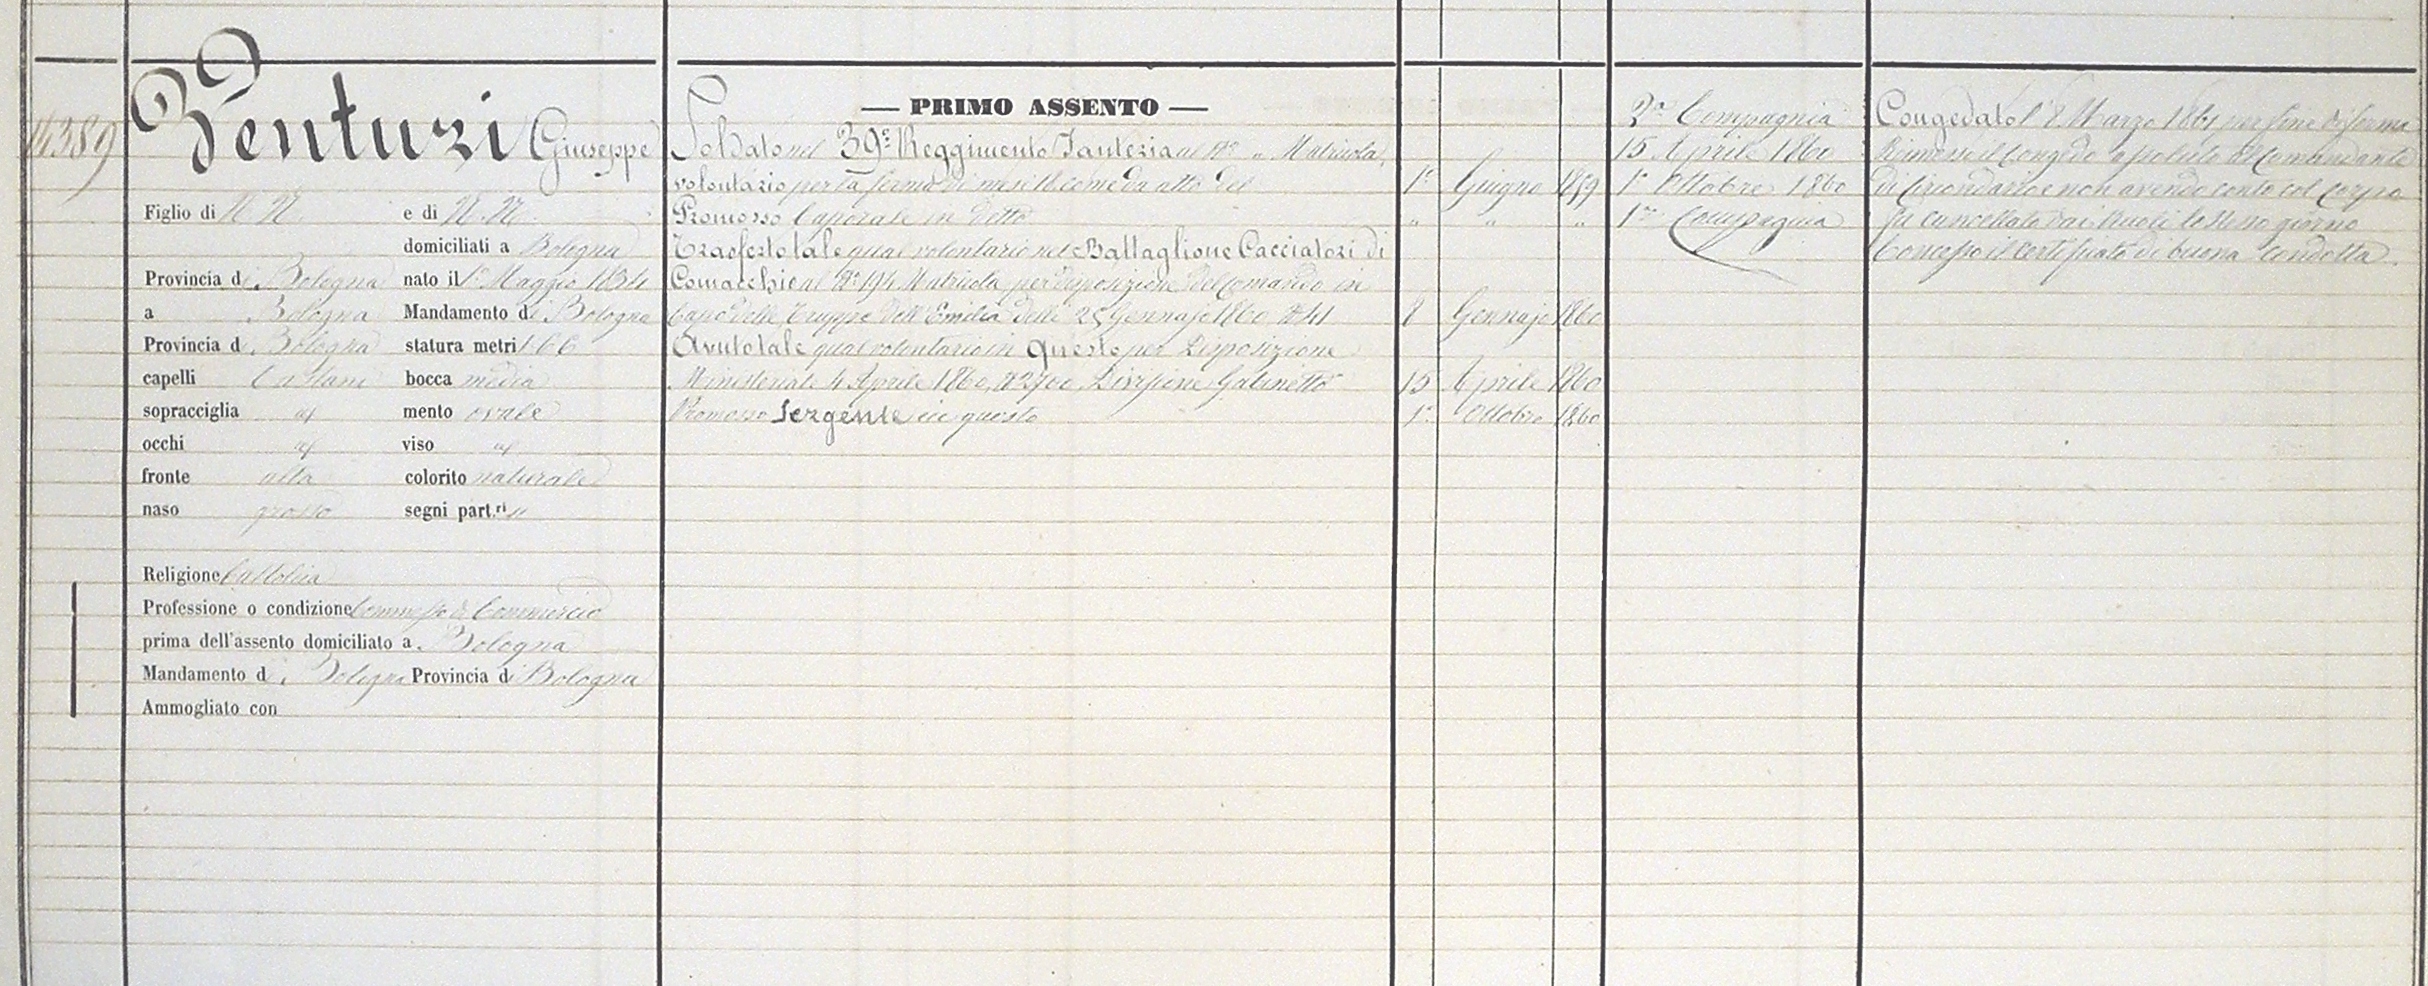 14389
Venturi Giuseppe
Figlio di N. N. e di N. N.
domiciliati a Bologna
Provincia di Bologna nato il 1° Maggio 1834
a Bologna Mandamento di Bologna
Provincia di Bologna statura metri 1.66
capelli Castani bocca media
sopracciglia id mento ovale
occhi id viso id
fronte alta colorito naturale
naso grosso segni part.ri "
Religione Cattolica
Professione o condizione Commesso di Commercio
prima dell'assento domiciliato a Bologna
Mandamento di Bologna Provincia di Bologna
Ammogliato con
— PRIMO ASSENTO —
Soldato nel 39° Reggimento Fanteria al N° " Matricola,
volontario per la ferma di mesi 18 come da atto del 1° Giugno 1859
Promosso Caporale in detto " " "
Trasferto tale qual volontario nel Battaglione Cacciatori di
Comacchio al N° 194 Matricola per disposizione del Comando in
Capo delle Truppe dell'Emilia delli 25 Gennajo 1860 N° 41 8 Gennajo 1860
Avuto tale qual volontario in questo per Disposizione
Ministeriale 4 Aprile 1860, N° 2900 Divisione Gabinetto 15 Aprile 1860
Promosso Sergente in questo 1° Ottobre 1860
2a Compagnia
15 Aprile 1860
1° Ottobre 1860
1a Compagnia
Congedato l'8 Marzo 1861 per fine di ferma
Rimesso il Congedo assoluto al Comandante
di Circondario e non avendo conto col Corpo
fu cancellato dai Ruoli lo stesso giorno
Concesso il certificato di buona condotta.